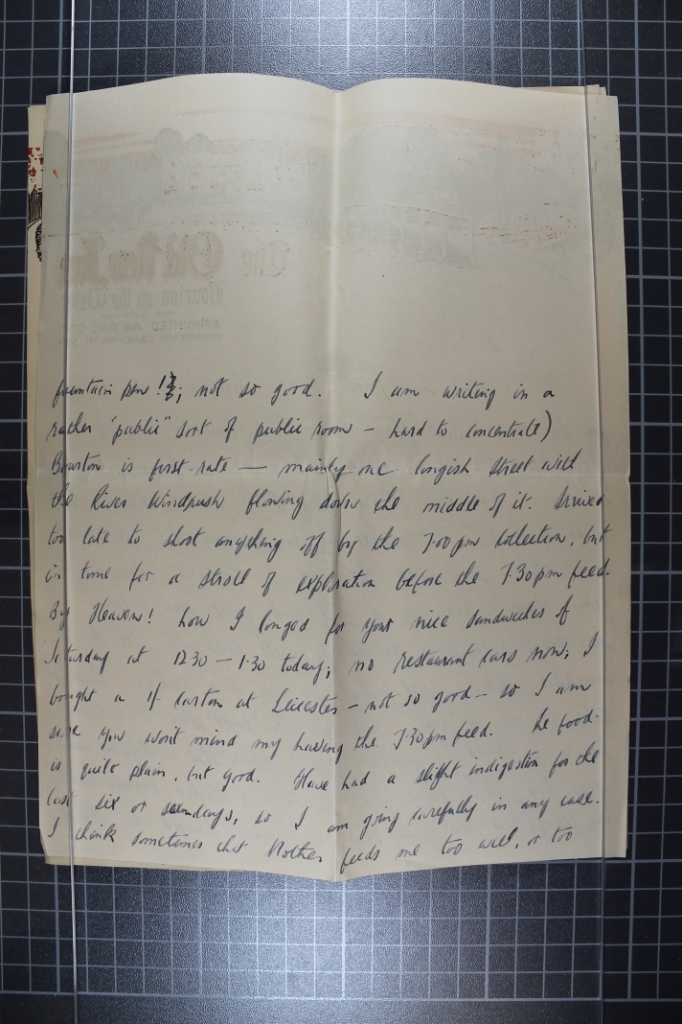 The Old New Inn
Bourton on the Water
APPOINTED AA RAC
fountain pen!?; not so good. I am writing in a
rather "public" sort of public room – hard to concentrate)
Bourton is first-rate — mainly one longish street with
the River Windrush flowing down the middle of it. Arrived
too late to shoot anything off by the 7.00 pm collection, but
in time for a stroll of exploration before the 7.30 pm feed.
By Heaven! how I longed for your nice sandwiches of
Saturday at 12.30 – 1.30 today; no restaurant cars now; I
bought a 1/- carton at Leicester – not so good – so I am
sure you won't mind my having the 7.30 pm feed. The food
is quite plain, but good. Have had a slight indigestion for the
last six or seven days, so I am going carefully in any case.
I think sometimes that Mother feeds me too well, or too